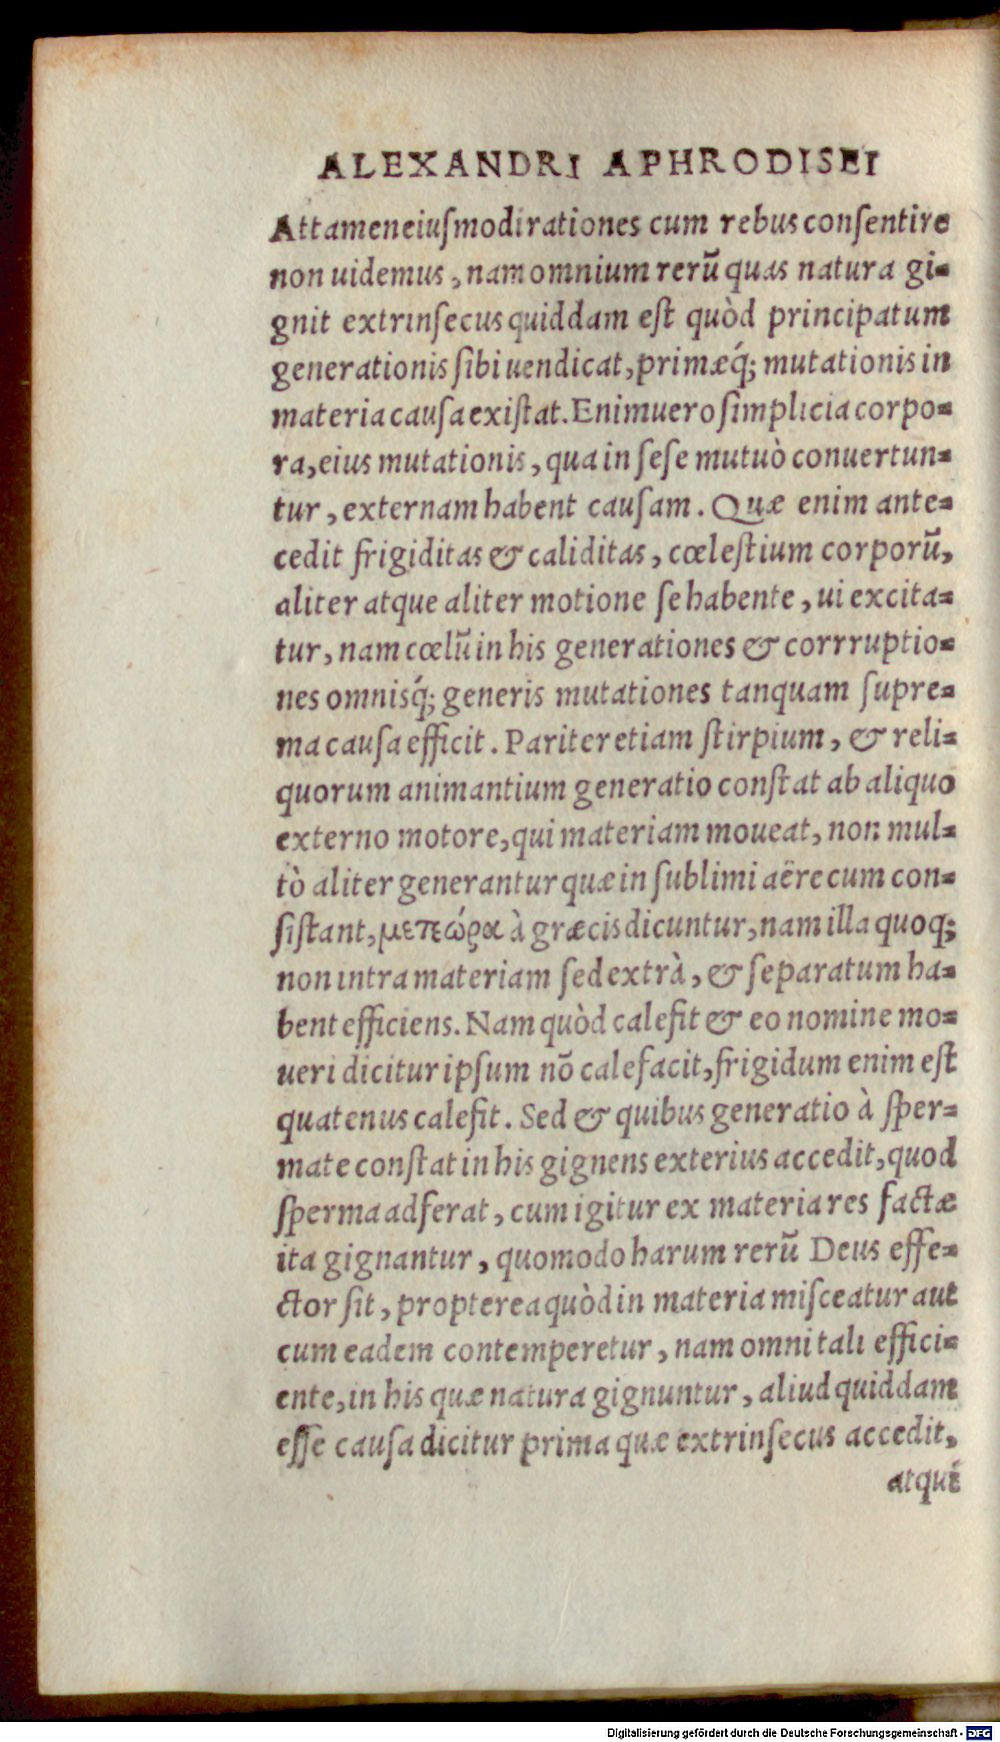 ALEXANDRI APHRODISEI
Attamen eiusmodi rationes cum rebus consentire
non uidemus, nam omnium rerũ quas natura gi-
gnit extrinsecus quiddam est quòd principatum
generationis sibi uendicat, primæq́; mutationis in
materia causa existat. Enimuero simplicia corpo-
ra, eius mutationis, qua in sese mutuò conuertun-
tur, externam habent causam. Quæ enim ante-
cedit frigiditas & caliditas, cœlestium corporũ,
aliter atque aliter motione se habente, ui excita-
tur, nam cœlũ in his generationes & corrruptio-
nes omnisq́; generis mutationes tanquam supre-
ma causa efficit. Pariter etiam stirpium, & reli-
quorum animantium generatio constat ab aliquo
externo motore, qui materiam moueat, non mul-
tò aliter generantur quæ in sublimi aëre cum con-
sistant, μετεώρα à græcis dicuntur, nam illa quoq;
non intra materiam sed extrà, & separatum ha-
bent efficiens. Nam quòd calefit & eo nomine mo-
ueri dicitur ipsum nõ calefacit, frigidum enim est
quatenus calefit. Sed & quibus generatio à sper-
mate constat in his gignens exterius accedit, quod
sperma adferat, cum igitur ex materia res factæ
ita gignantur, quomodo harum rerũ Deus effe-
ctor sit, propterea quòd in materia misceatur aut
cum eadem contemperetur, nam omni tali effici-
ente, in his quæ natura gignuntur, aliud quiddam
esse causa dicitur prima quæ extrinsecus accedit,
atqui
Digitalisierung gefördert durch die Deutsche Forschungsgemeinschaft - DFG